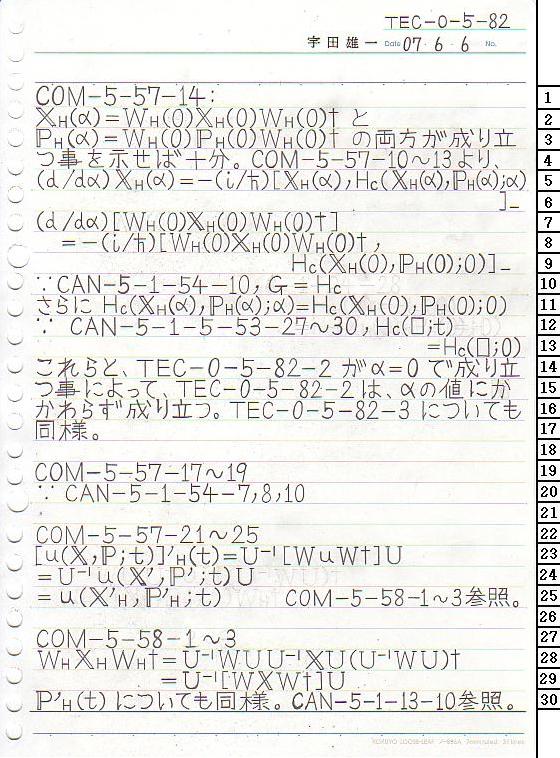 TEC-0-5-82
宇田雄一 Date 07・6・6 No.
COM-5-57-14:
𝕏H(α)=WH(0)𝕏H(0)WH(0)† と
ℙH(α)=WH(0)ℙH(0)WH(0)† の両方が成り立
つ事を示せば十分。COM-5-57-10～13より、
(d/dα)𝕏H(α)=-(i/ħ)[𝕏H(α),Hc(𝕏H(α),ℙH(α);α)
]_
(d/dα)[WH(0)𝕏H(0)WH(0)†]
=-(i/ħ)[WH(0)𝕏H(0)WH(0)†,
Hc(𝕏H(0),ℙH(0);0)]_
∵CAN-5-1-54-10,G=Hc
さらに Hc(𝕏H(α),ℙH(α);α)=Hc(𝕏H(0),ℙH(0);0)
∵ CAN-5-1-5-53-27～30,Hc(□;t)
=Hc(□;0)
これらと、TEC-0-5-82-2 がα=0 で成り立
つ事によって、TEC-0-5-82-2は、αの値にか
かわらず成り立つ。TEC-0-5-82-3 についても
同様。
COM-5-57-17～19
∵ CAN-5-1-54-7,8,10
COM-5-57-21～25
[u(𝕏,ℙ;t)]'H(t)=U⁻¹[WuW†]U
=U⁻¹u(𝕏',ℙ';t)U
=u(𝕏'H,ℙ'H;t) COM-5-58-1～3参照。
COM-5-58-1～3
WH𝕏HWH†=U⁻¹WUU⁻¹𝕏U(U⁻¹WU)†
=U⁻¹[W𝕏W†]U
ℙ'H(t)についても同様。CAN-5-1-13-10参照。
1
2
3
4
5
6
7
8
9
10
11
12
13
14
15
16
17
18
19
20
21
22
23
24
25
26
27
28
29
30